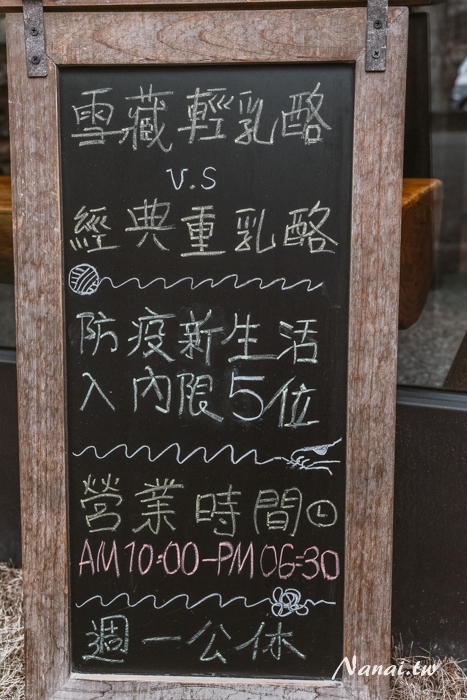 雪藏輕乳酪
V.S
經典重乳酪
防疫新生活
入內限5位
營業時間
AM10:00-PM06:30
週一公休
Nanai.tw